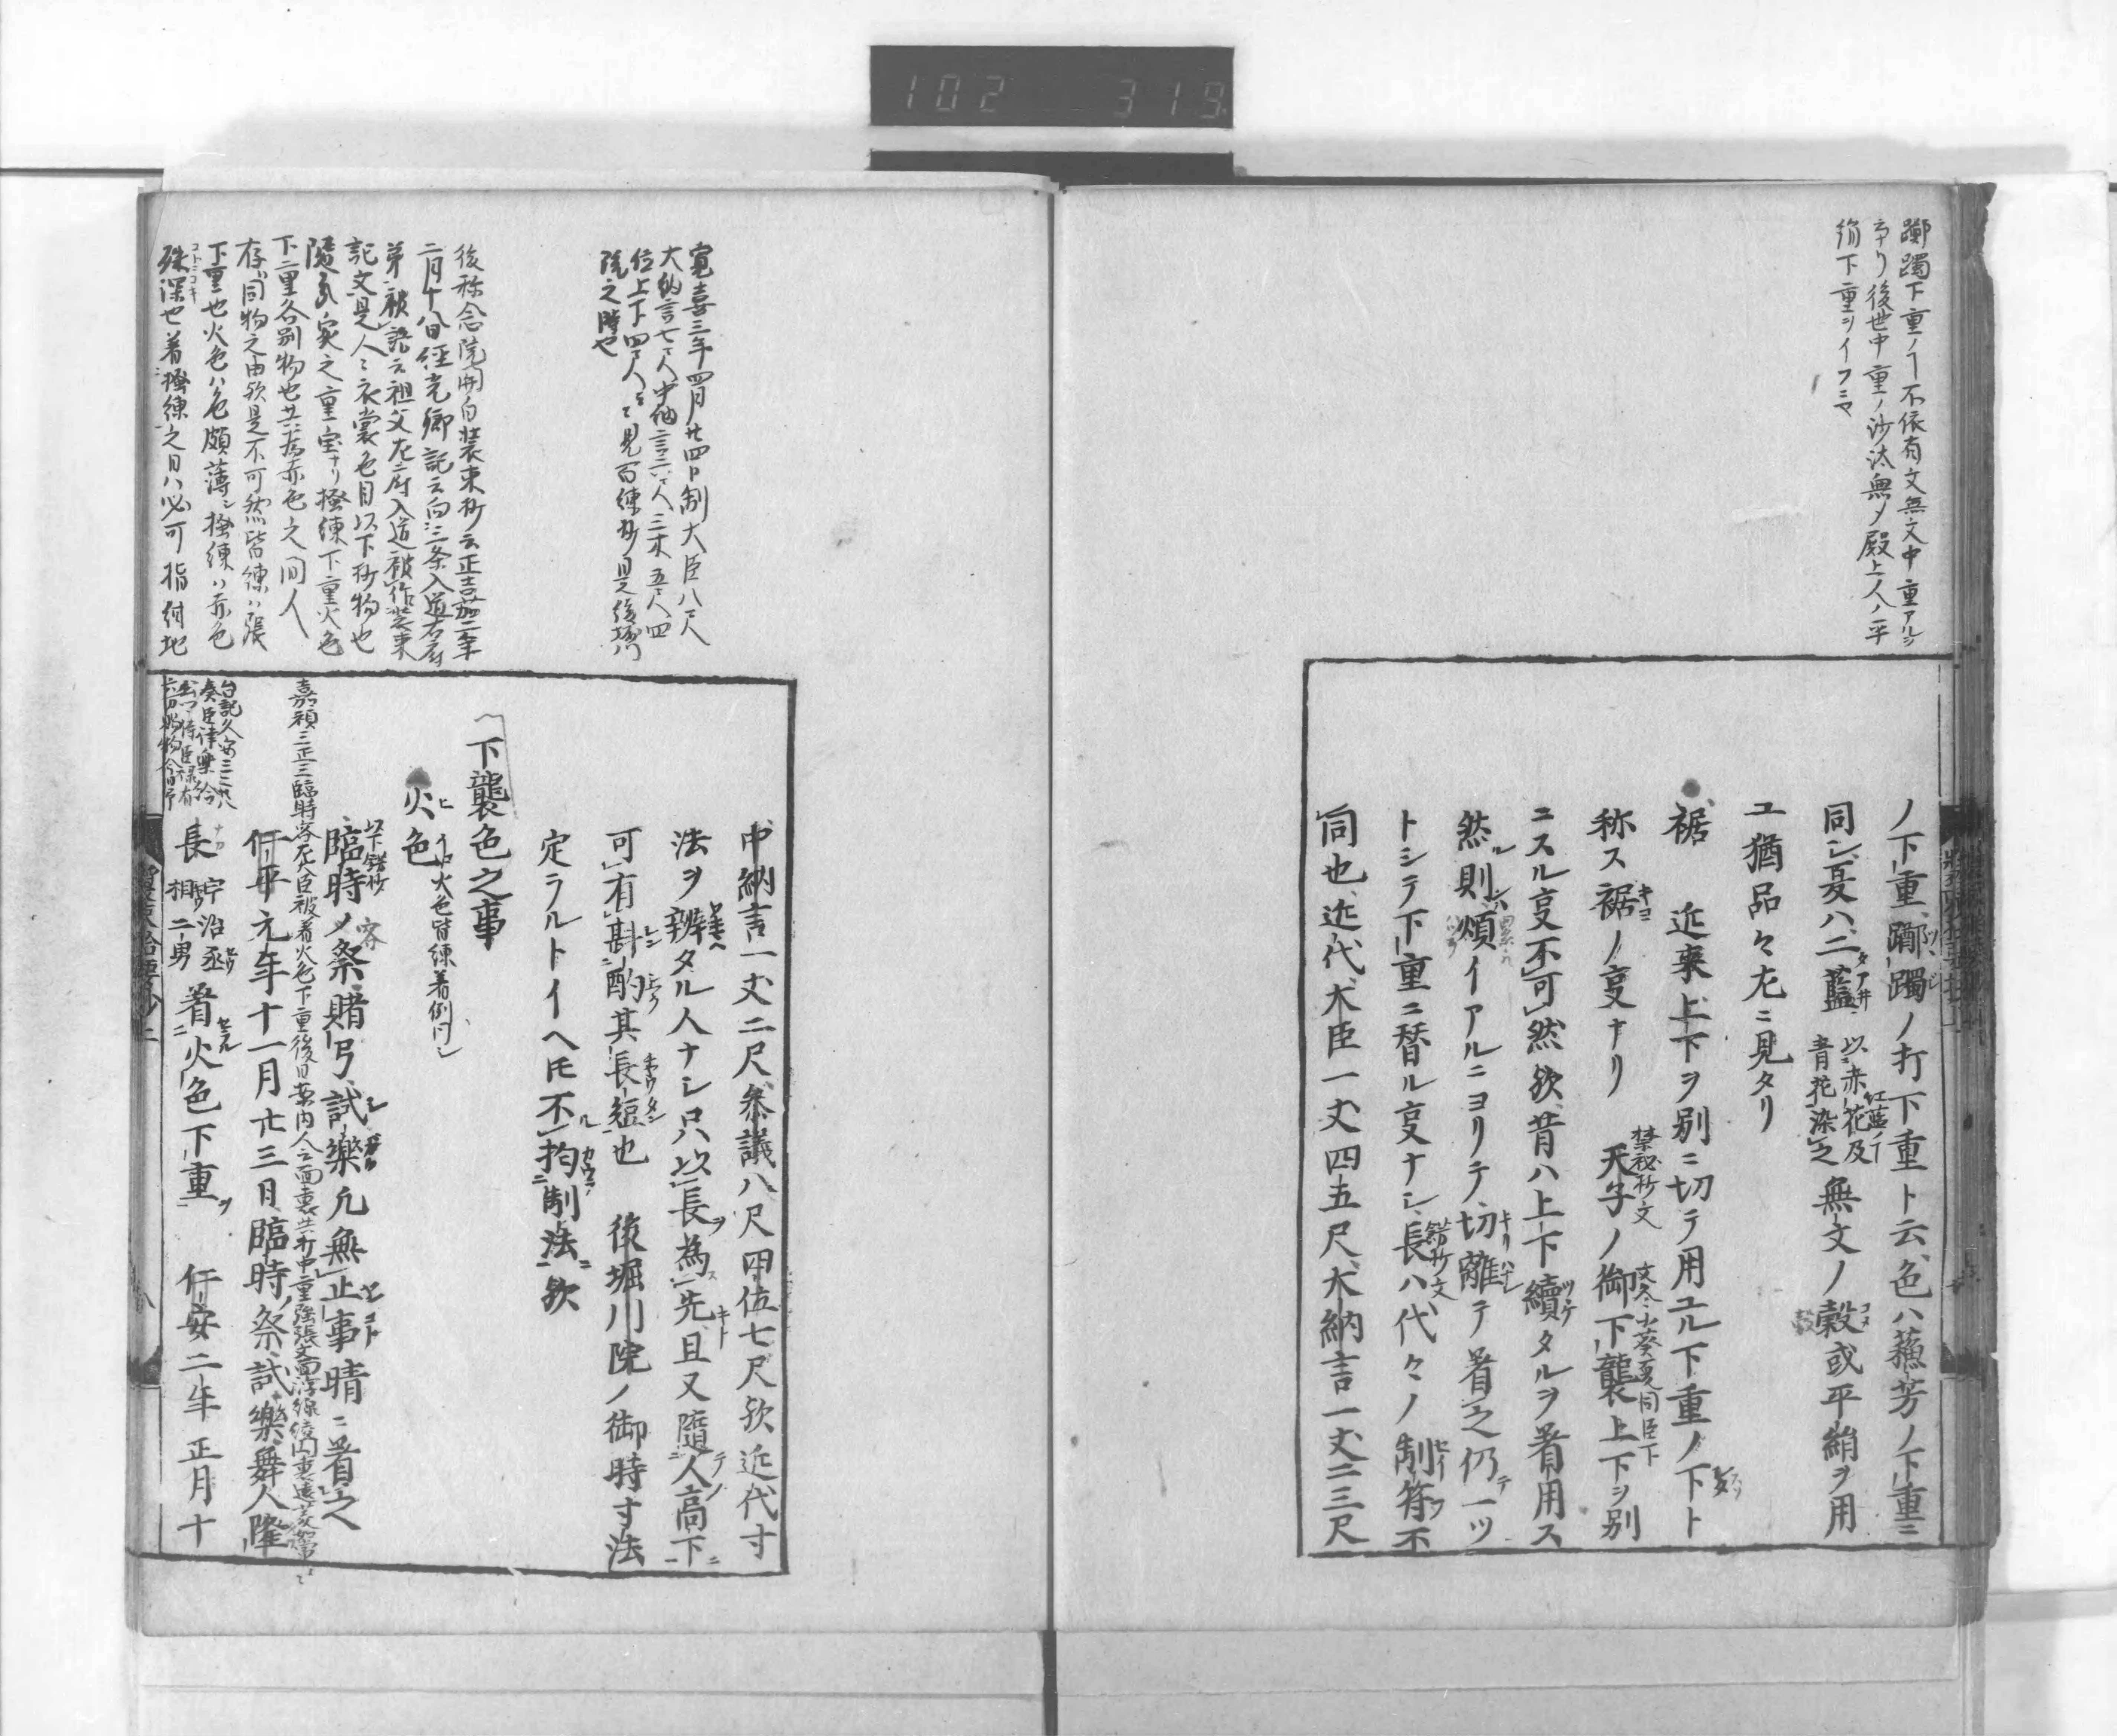 102 319
躑躅下重ノ丁不依有文無文中重アルシ
後世中重ノ沙汰無〆殿上人ノ平
絹下重ヲイフミヤ
ノ下重躑躅ノ打下重ト云色ハ蘓芳ノ下重ニ
同シ夏ハ二藍以赤花及
青花染之無文ノ縠或平絹ヲ用
ユ猶品々左ニ見タリ
裾 近来上下ヲ別ニ切テ用ユル下重ノ下ト
称ス裾ノ㕝ナリ 天子ノ御下襲上下ヲ別
禁秘抄文
ニスル㕝不可然欤昔ハ上下續タルヲ着用ス
然則煩イアルニヨリテ切離テ着之仍一ツ
トシテ下重ニ替ル㕝ナシ長ハ代々ノ制符不
餝抄文
同也近代大臣一丈四五尺大納言一丈二三尺
寛喜三年四月廿四日制大臣八人
大納言七人中納言六人三木五人四
位上下四人云々見百練抄是後堀川
院之時也
後称念院関白装束抄云正嘉二年
二月十八日経光卿記云向三条入道右府
第被語云祖父左府入道被作装束
記文是人々衣裳色目以下抄物也
随身家之重宝ナリ掻練下重火色
下重各別物也共為赤色之間人
存同物之由欤是不可然皆練ハ張
下重也火色ハ色頗薄シ掻練ハ赤色
殊深也着掻練之日ハ必可指付地
中納言一丈二尺参議八尺四位七尺欤近代寸
法ヲ辨タル人ナシ只以長為先且又随人高下
可有斟酌其長短也 後堀川院ノ御時寸法
定ラルトイヘ𪜈不拘制法欤
下襲色之事
火色
火色皆練着例同シ
以下餝抄
臨時〆祭賭弓試樂凢無止事晴ニ着之
嘉禎三正三臨時客左大臣被着火色下重後日
仁平元年十一月廿三日臨時祭試樂舞人隆
長宇治丞
相二男着火色下重 仁安二年正月十